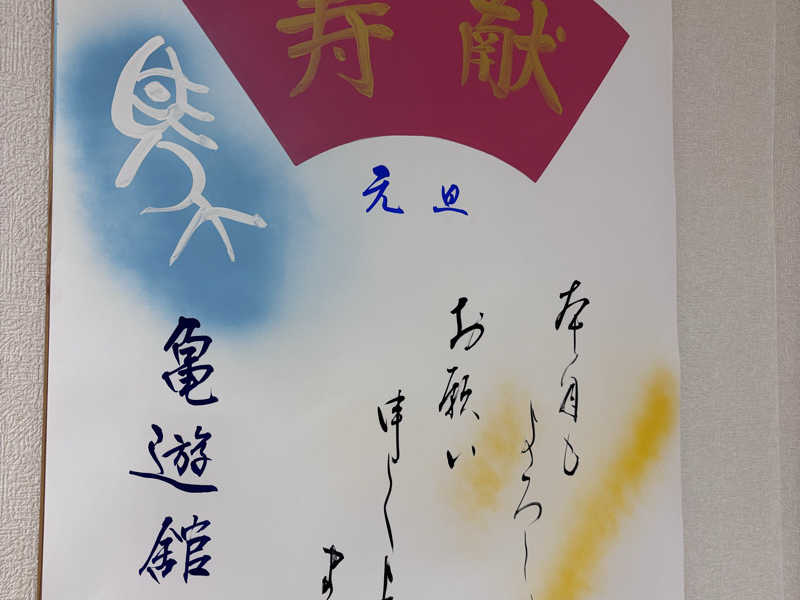 献寿
元旦
本年も
よろし
お願い
申し上
ま
亀遊館